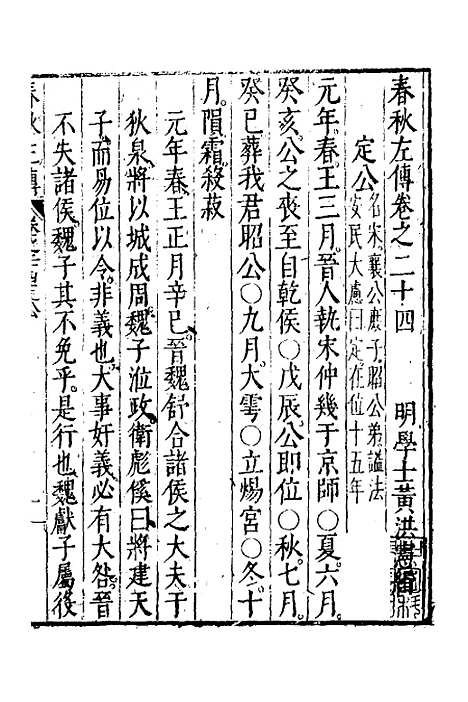 春秋左傳卷之二十四　明學士黃洪憲輯
定公名宋襄公庶子昭公弟諡法
安民大慮曰定在位十五年
元年春王三月晉人執宋仲幾于京師○夏六月
癸亥公之喪至自乾侯○戊辰公即位○秋七月
癸巳葬我君昭公○九月大雩○立煬宮○冬十
月隕霜殺菽
元年春王正月辛巳晉魏舒合諸侯之大夫于
狄泉將以城成周魏子涖政衛彪傒曰將建天
子而易位以令非義也大事奸義必有大咎晉
不失諸侯魏子其不免乎是行也魏獻子屬役
春秋左傳